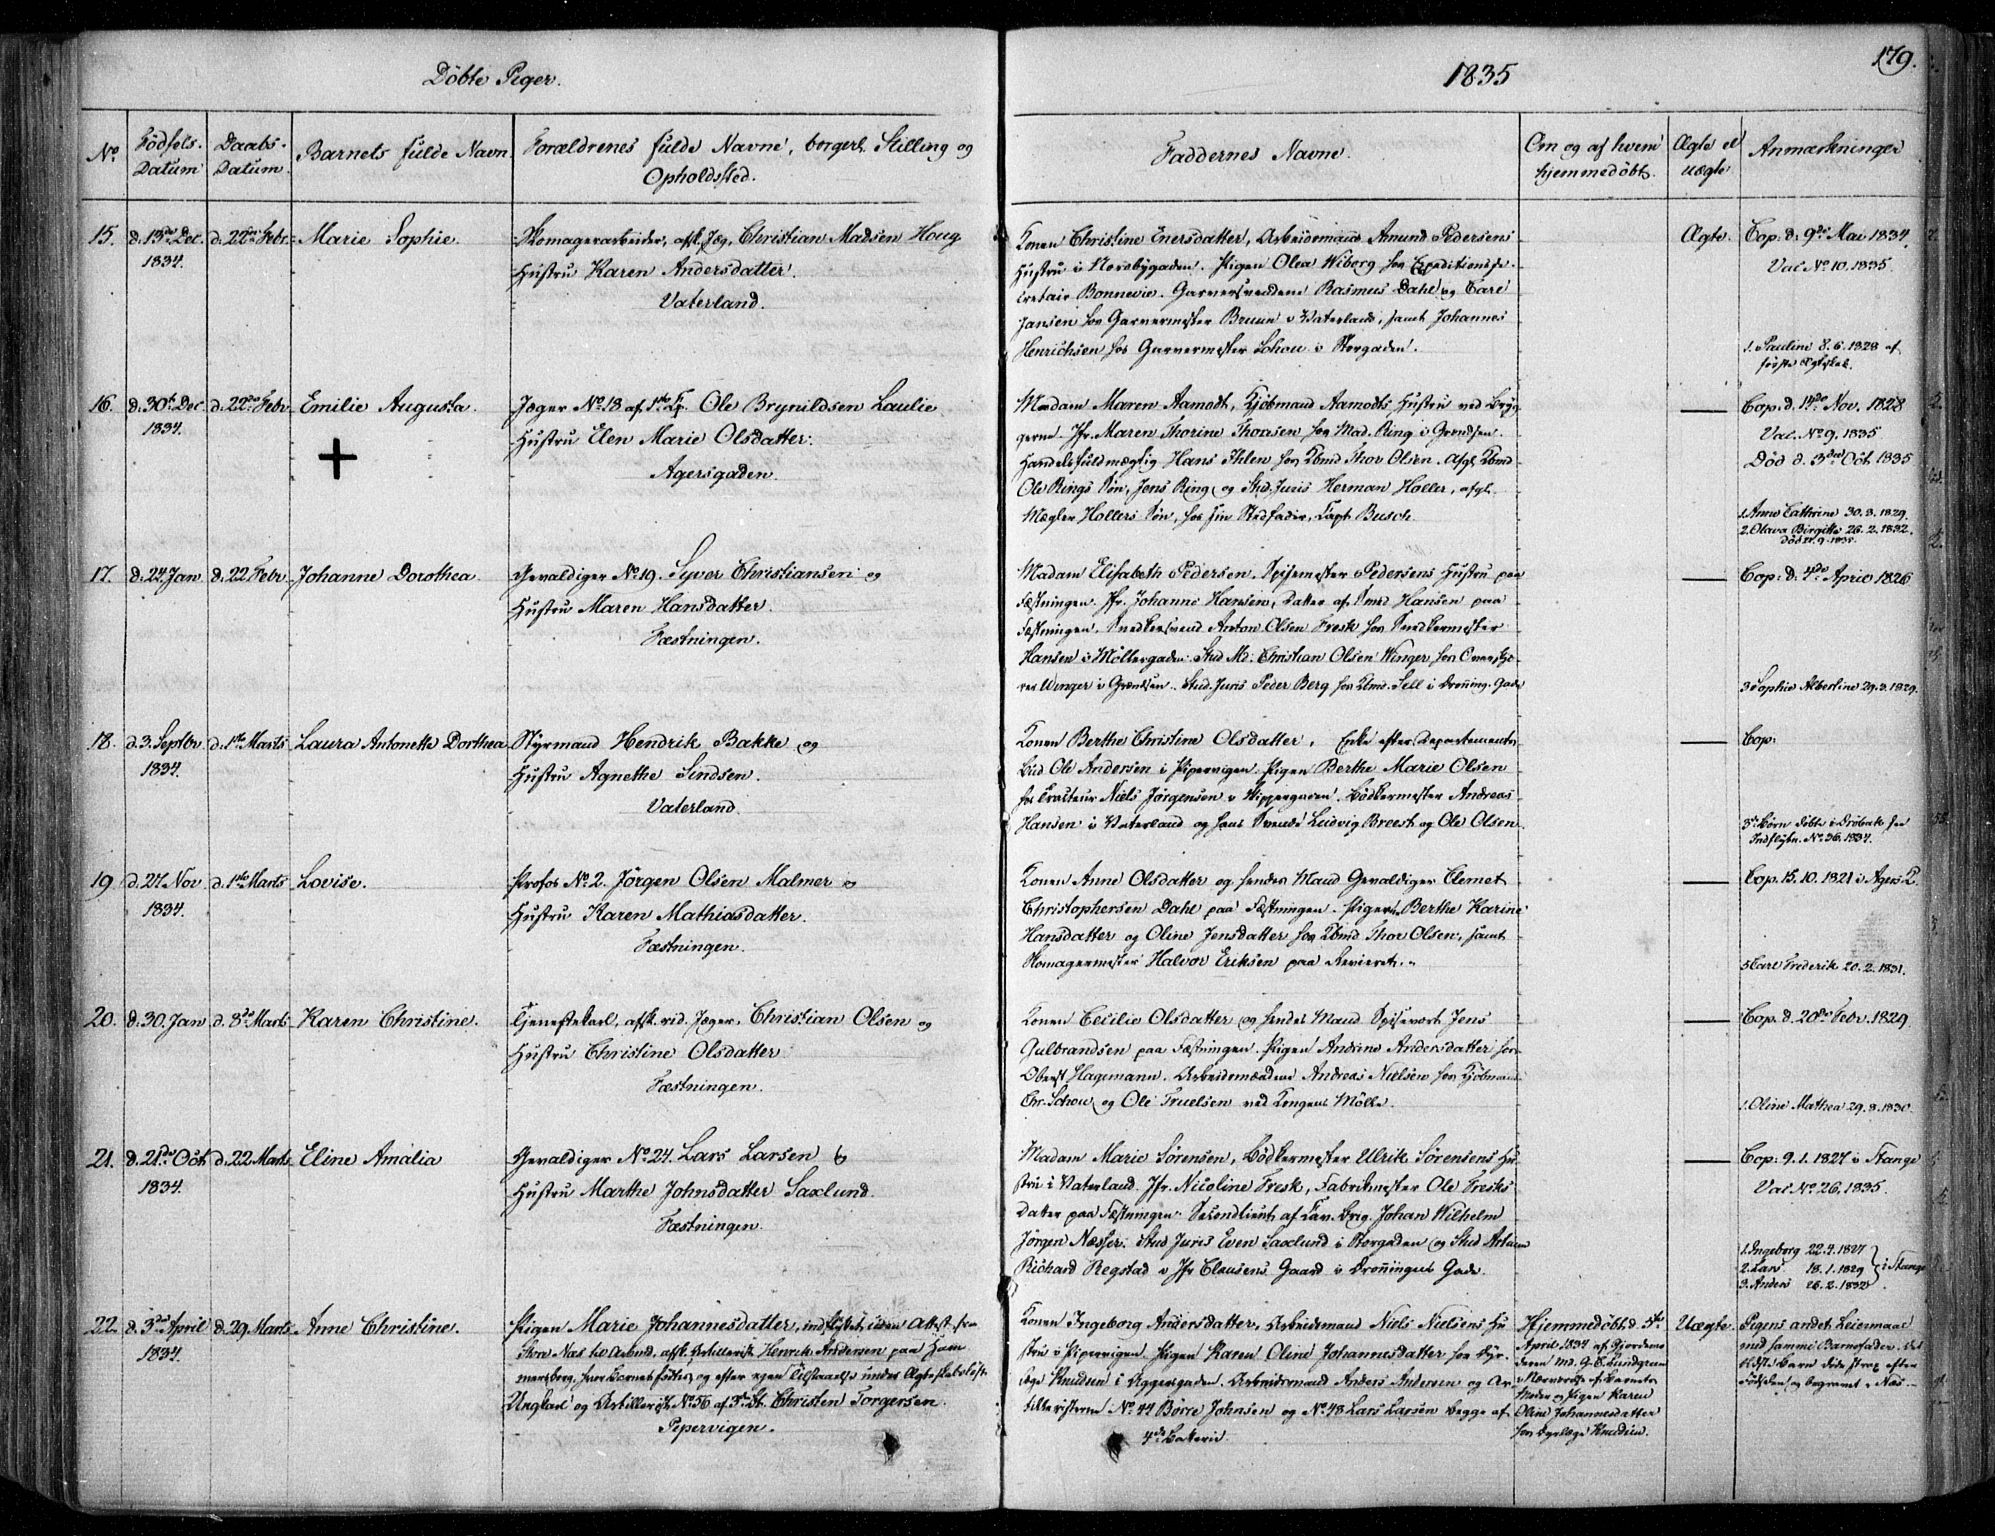 Döbte Piger.
1835
179.
No
Födsels-Datum
Daabs-Datum
Barnets fulde Navn
Forældrenes fulde Navne, borgerl. Stilling og Opholdssted.
Faddernes Navne.
Om og af hvem hjemmedöbt.
Ægte el uægte
Anmærkninger
15. d. 13de Dec 1834. d. 22de Febr. Marie Sophie.
Skomagerarbeider, afsk. Jæg. Christian Madsen Houg
Hustru Karen Andersdatter.
Vaterland.
Konen Christine Enersdatter, Arbeidsmand Amund Pedersens
Hustru i Norbygaden. Pigen Olea Wiborg hos Expeditionsse-
cretair Bonnevie. Garversvendene Rasmus Dahl og Carl
Jansen hos Garvermester Bruun i Vaterland, samt Johannes
Henrichsen hos Garvermester Schou i Storgaden.
Ægte.
Cop. d. 9de Mai 1834.
Vac No. 10. 1835.
1. Pauline 8. 6. 1828 af
første Ægteskab.
16. d. 30te Dec 1834. d. 22de Febr Emilie Augusta.
Jæger No. 18 af 1ste Cp. Ole Brynildsen Laulie
Hustru Elen Marie Olsdatter.
Agersgaden.
Madam Maren Aamodt, Kjöbmand Aamodts Hustru ved Bryg-
gerne. Jfr. Maren Thorine Thoresen hos Mad. Ring i Grendsen.
Handelsfuldmægtig Hans Ihlen hos Kbmd Thor Olsen. Afgl. Kbmd
Ole Rings Sön, Jens Ring og Stud. Juris Herman Holler, afgl.
Mægler Hollers Sön, hos sin Stedfader, Capt. Busch.
Cop. d. 14de Nov. 1828
Vac. No. 9. 1835
Död d. 3die Oct 1835
1. Anne Cathrine 30. 3. 1829.
2. Olava Birgitte 26. 2. 1832.
17. d. 24 Jan d. 22 Febr. Johanne Dorothea.
Gevaldiger No. 19. Syver Christiansen og
Hustru Maren Hansdatter.
Fæstningen.
Madam Elisabeth Pedersen. Spisemester Pedersens Hustru paa
Fæstningen. Jfr. Johanne Hansen, Datter af Smed Hansen paa
Fæstningen. Snedkersvend Anton Olsen Fresk hos Snedkermester
Hansen i Möllergaden. Stud Md. Christian Olsen Winger, hos
Winger i Grændsen. Stud. Juris Peder Berg hos Kbmd. Sell i Dronning. Gade
Cop: d. 4de April 1826
3 Sophie Albertine 29. 3. 1829.
18. d. 3. Septbr 1834. d. 1ste Marts Laura Antonette Dorthea
Styrmand Hendrik Bakke og
Hustru Agnethe Sindsen.
Vaterland.
Konen Berthe Christine Olsdatter, Enke efter Departements-
bud Ole Andersen i Pipervigen. Pigen Berthe Marie Olsen
hos Tracteur Niels Jörgensen i Vippegaden. Bödkermester Andreas
Hansen i Vaterland og hans Svende Ludvig Breest og Ole Olsen.
Cop:
3de Börn döbte i Dröbak see
Indflytn. No. 36. 1834.
19 d. 27 Nov 1834. d. 1ste Marts Lovise.
Profos No. 2. Jörgen Olsen Malmer og
Hustru Karen Mathiasdatter.
Fæstningen.
Konen Anne Olsdatter og hendes Mand Gevaldiger Clemet
Christophersen Dahl paa Fæstningen. Pigerne Berthe Karine
Hansdatter og Oline Jensdatter hos Kbmd Thor Olsen, samt
Skomagermester Halvor Eriksen paa Revieret.
Cop. 15. 10. 1821 i Agers K.
5 Carl Frederik 20. 2. 1831.
20. d. 30. Jan d. 8de Marts Karen Christine.
Tjenestekarl, afsk. rid. Jæger, Christian Olsen og
Hustru Christine Olsdatter
Fæstningen.
Konen Cecilie Olsdatter og hendes Mand Spisevært Jens
Gulbrandsen paa Fæstningen. Pigen Andrine Andersdatter hos
Oberst Hagemann. Arbeidsmændene Andreas Nielsen hos Kjöbmand
Chr. Schou og Ole Truelsen ved Kongens Mölle.
Cop. d. 20de Febr. 1829.
1. Oline Mathea 29. 8. 1830.
21. d. 21de Oct 1834. d. 22 Marts Eline Amalia
Gevaldiger No. 24. Lars Larsen og
Hustru Marthe Johnsdatter Saxlund.
Fæstningen.
Madam Marie Sörensen, Bödkermester Ulrik Sörensens Hu-
stru i Vaterland. Jfr. Nicoline Fresk, Fabrikmester Ole Fresks
Datter paa Fæstningen. Secondlieut. af Cav. Brig. Johan Wilhelm
Jörgen Næsser. Stud Juris Even Saxlund i Storgaden og Stud Artium
Richard Regstad i Jfr Clausens Gaard i Dronningens Gade.
Cop: 9. 1. 1827 i Stange
Vac No. 26. 1835.
1. Ingeborg 22. 4. 1827
2. Lars 18. 1. 1829
3. Anders 26. 2. 1832
i Stange
22 d. 3die April 1834. d. 29 Marts Anne Christine.
Pigen Marie Johannesdatter, indflyttet uden Attest fra
Store Næs til Arbud, afsk. Artillerist Henrik Andersen paa Ham-
mersborg, hvor Barnet födtes, og efter egen Tilstaaelse under Ægteskabslöfte
Ungkarl og Artillerist No. 56 af 3die Bt. Christen Torgersen.
Pepervigen.
Konen Ingeborg Andersdatter, Arbeidsmand Niels Nielsens Hu-
stru i Pipervigen. Pigen Karen Oline Johannesdatter hos Dyr-
læge Knudsen i Aggersgaden. Arbeidsmand Anders Andersen og Ar-
tilleristerne No. 44 Börre Johnsen og No. 48 Lars Larsen begge af
4de Batterie
Hjemmedöbt d. 5te
April 1834 af Gjordemo-
deren Md. G. E. Lundgreen
i Nærværelse af Barnets
Moder og Pigen Karen
Oline Johannesdatter
hos Dyrlæge Knudsen.
Uægte.
Pigens andet Leiermaal
med samme Barnefader. Det
ældste Barn döde strax efter
Födselen og begravet i Næs